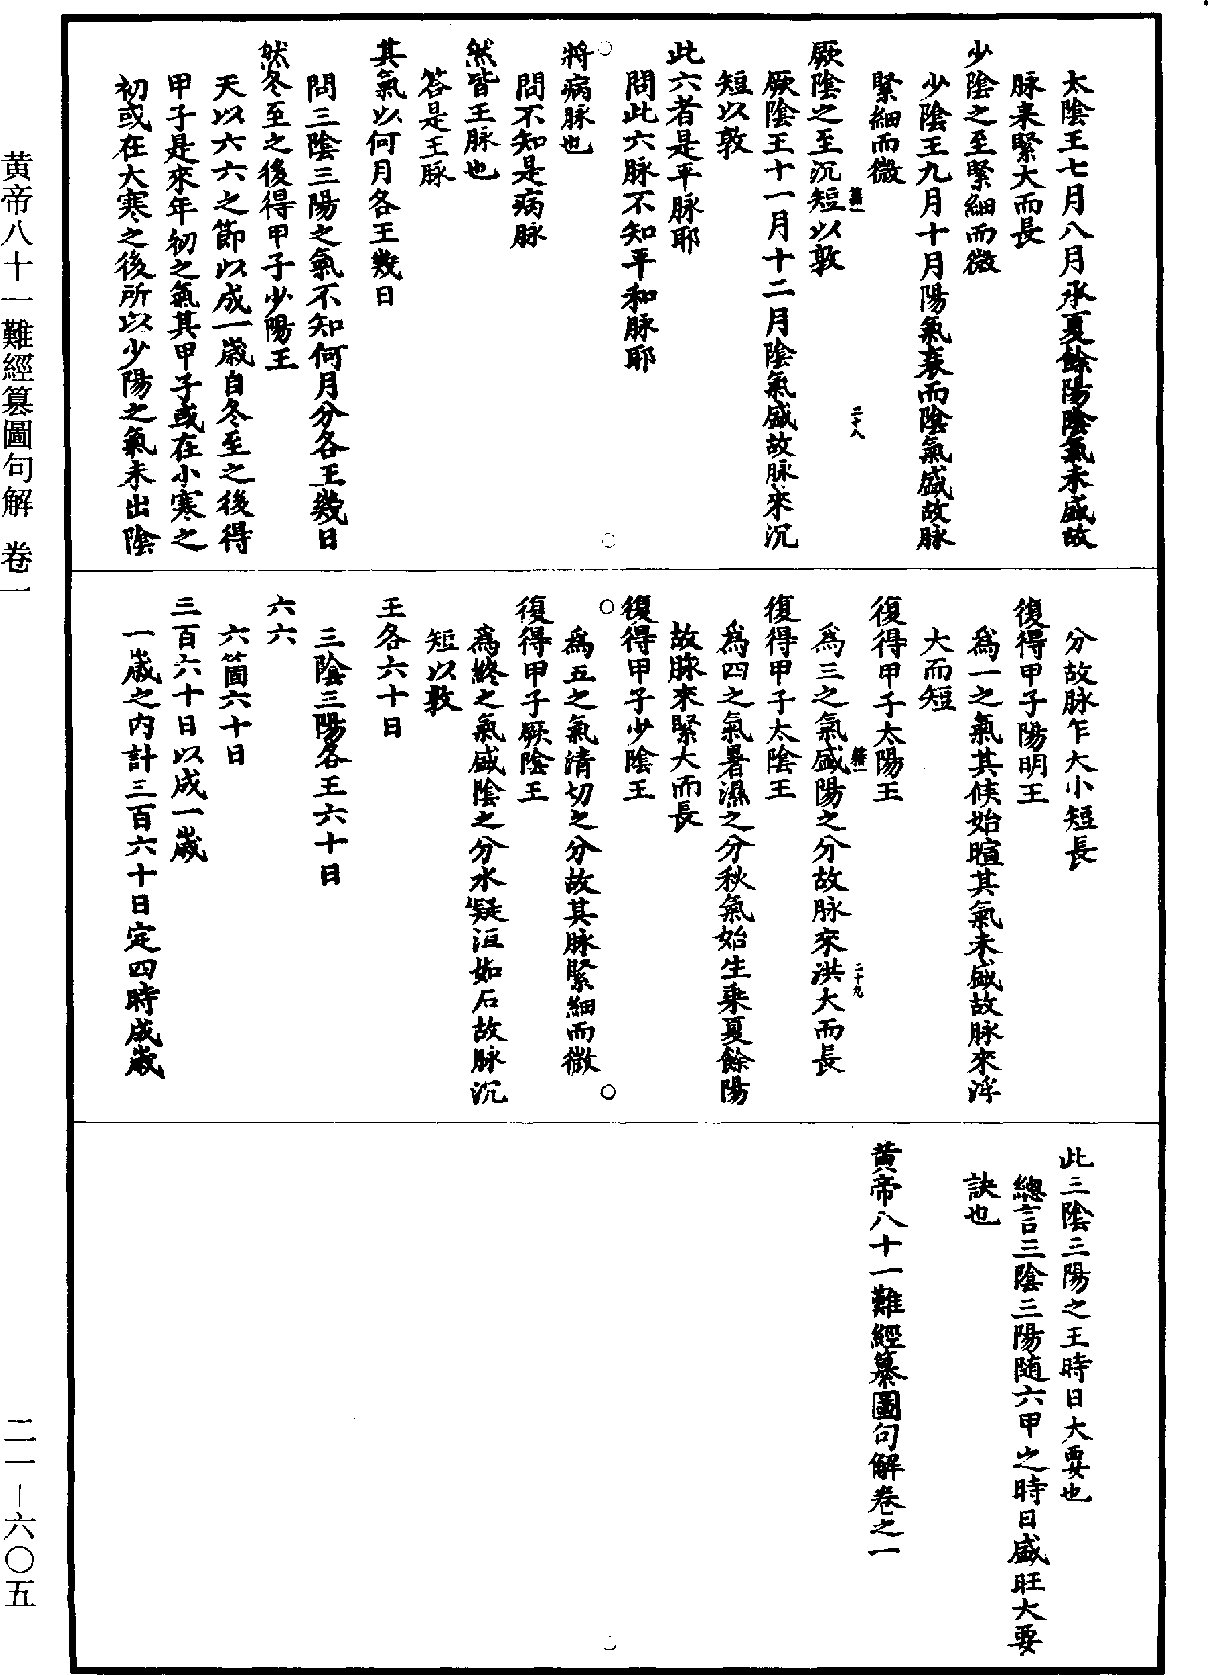 太陰王七月八月承夏餘陽陰氣未盛故
脉來緊大而長
少陰之至緊細而微
少陰王九月十月陽氣衰而陰氣盛故脉
緊細而微
厥陰之至沉短以敦
卷一
二十八
厥陰王十一月十二月陰氣盛故脉來沉
短以敦
此六者是平脉耶
問此六脉不知平和脉耶
將病脉也
問不知是病脉
然皆王脉也
答是王脉
其氣以何月各王幾日
問三陰三陽之氣不知何月分各王幾日
然冬至之後得甲子少陽王
天以六六之節以成一歲自冬至之後得
甲子是來年初之氣其甲子或在小寒之
初或在大寒之後所以少陽之氣未出陰
分故脉乍大小短長
復得甲子陽明王
爲一之氣其候始暄其氣未盛故脉來浮
大而短
復得甲子太陽王
卷一
二十九
爲三之氣盛陽之分故脉來洪大而長
復得甲子太陰王
爲四之氣暑濕之分秋氣始生乗夏餘陽
故脉來緊大而長
復得甲子少陰王
爲五之氣清切之分故其脉緊細而微
復得甲子厥陰王
爲終之氣盛陰之分水凝沍如石故脉沉
短以敦
王各六十日
三陰三陽各王六十日
六六
六箇六十日
三百六十日以成一歲
一歲之內計三百六十日定四時成歲
此三陰三陽之王時日大要也
總言三陰三陽随六甲之時日盛旺大要
訣也
黄帝八十一難經纂圖句解卷之一
黄帝八十一難經纂圖句解 卷一
二一—六〇五